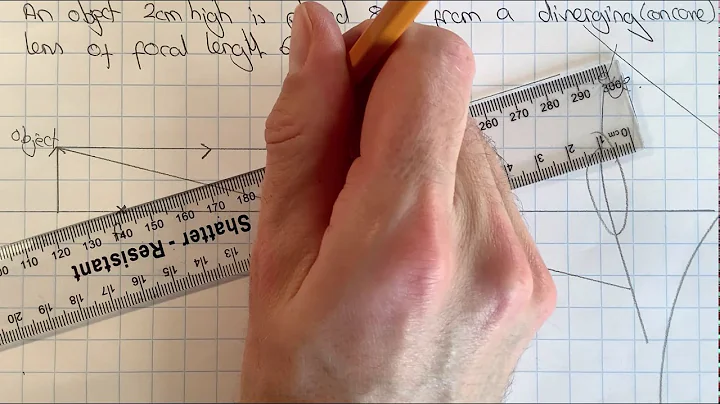 An object 2cm high is from a diverging (concave)
lens of focal length
Object
260 270 280 290 300
4 3 2 1 0 cm
110 120 130 140 150 160 170 180
Shatter-Resistant
20 19 18 17 16 15 14 13